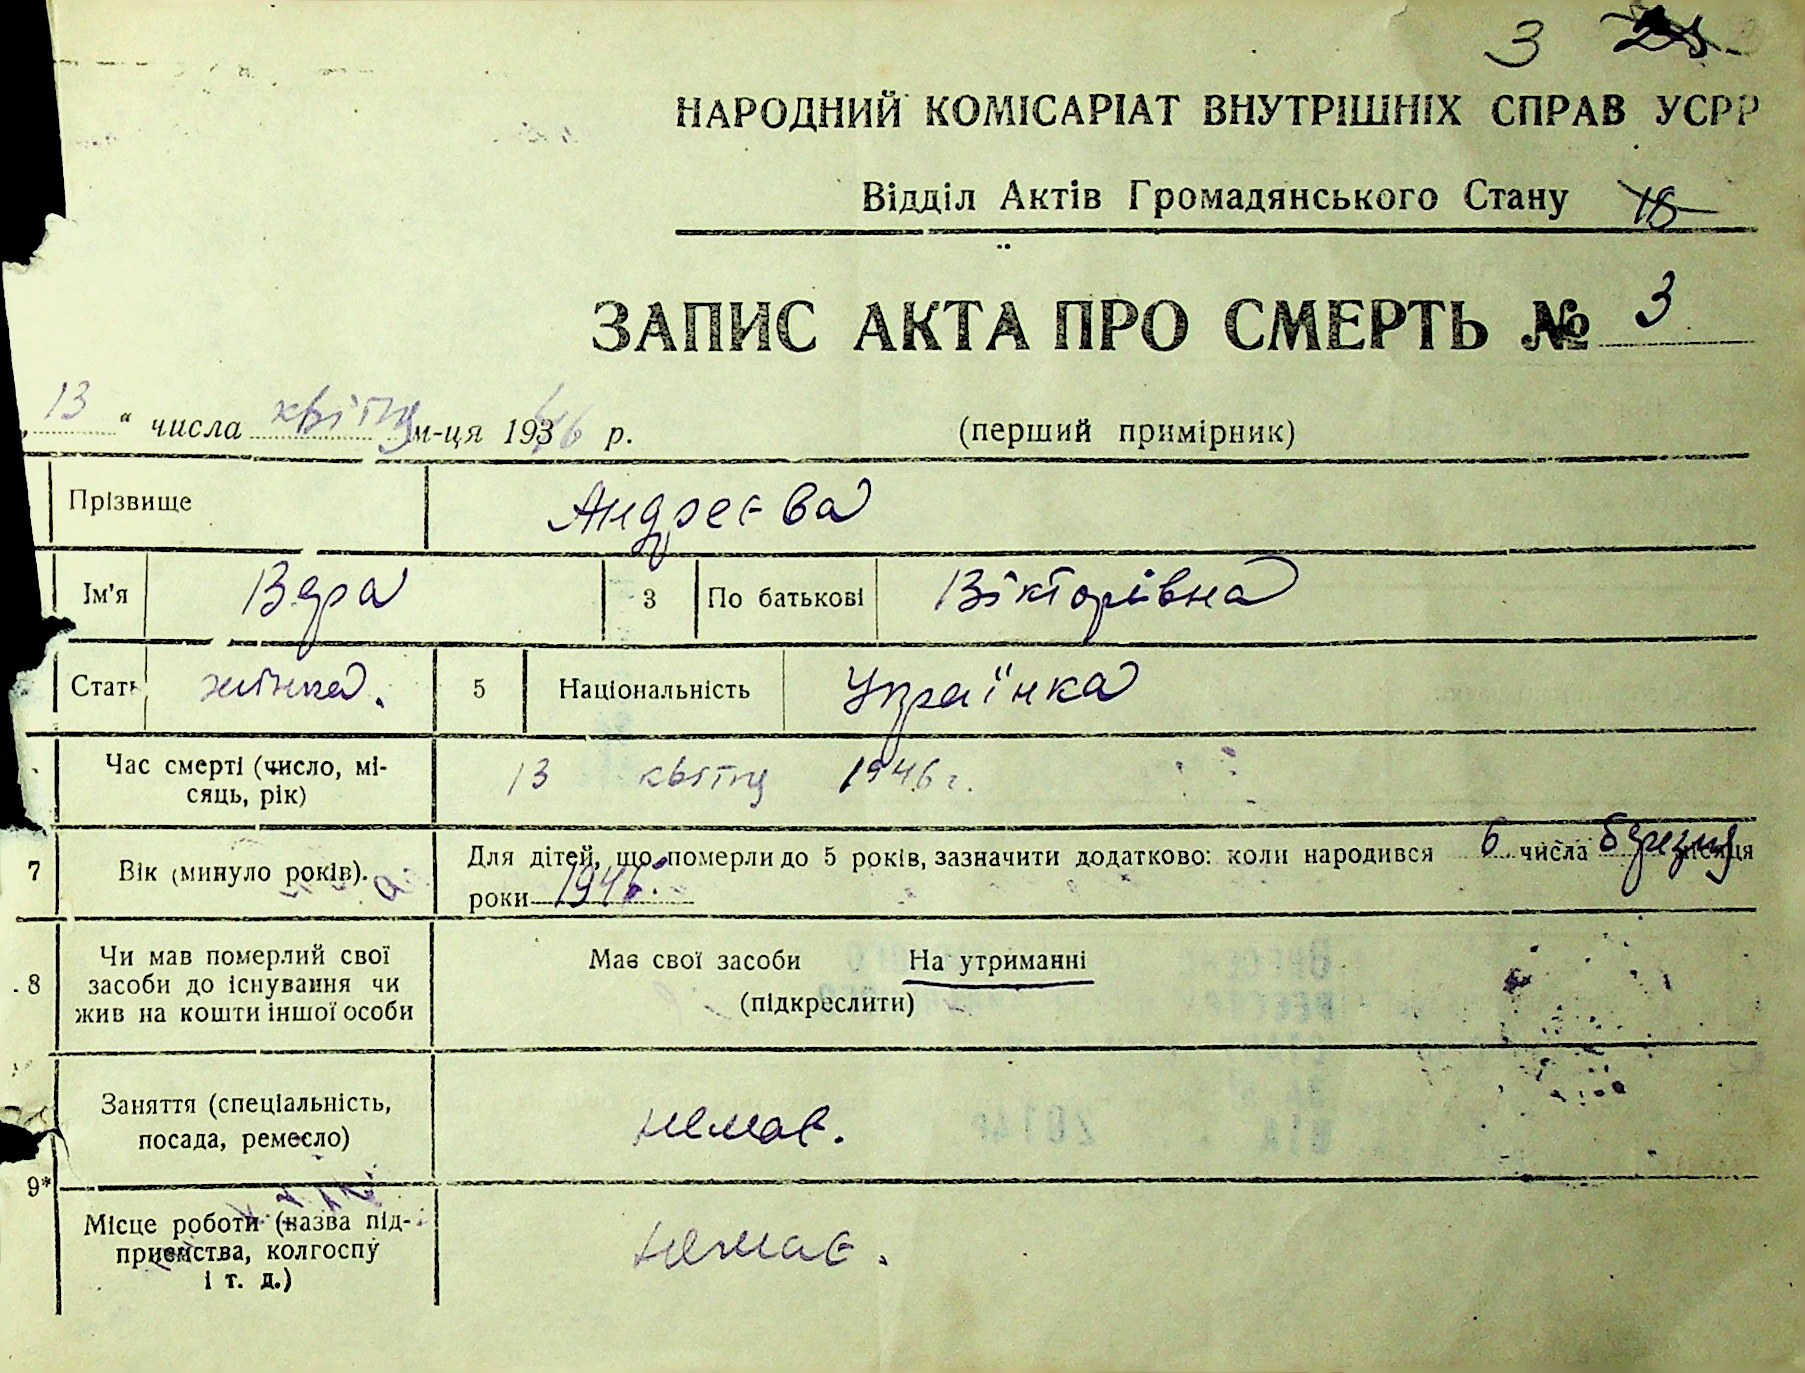 3
НАРОДНИЙ КОМІСАРІАТ ВНУТРІШНІХ СПРАВ УСРР
Відділ Актів Громадянського Стану 18
ЗАПИС АКТА ПРО СМЕРТЬ № 3
„ 13 “ числа квітня м-ця 1946 р. (перший примірник)
Прізвище Андреєва
Ім'я Вера 3 По батькові Вікторівна
Стать жінка. 5 Національність Українка
Час смерті (число, мі-
сяць, рік) 13 квітня 1946 г.
7 Вік (минуло років). Для дітей, що померли до 5 років, зазначити додатково: коли народився 6 числа березня місяця
роки 1946.
8 Чи мав померлий свої
засоби до існування чи
жив на кошти іншої особи
Має свої засоби На утриманні
(підкреслити)
Заняття (спеціальність,
посада, ремесло) немає.
9*
Місце роботи (назва під-
приємства, колгоспу
і т. д.) немає.